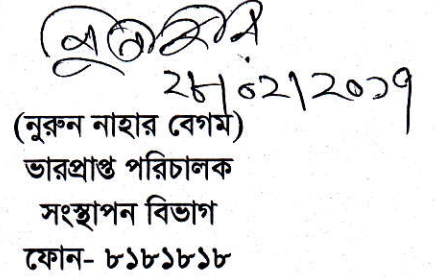 ২৮/০২/২০১৭
(নুরুন নাহার বেগম)
ভারপ্রাপ্ত পরিচালক
সংস্থাপন বিভাগ
ফোন- ৮১৮১৮১৮